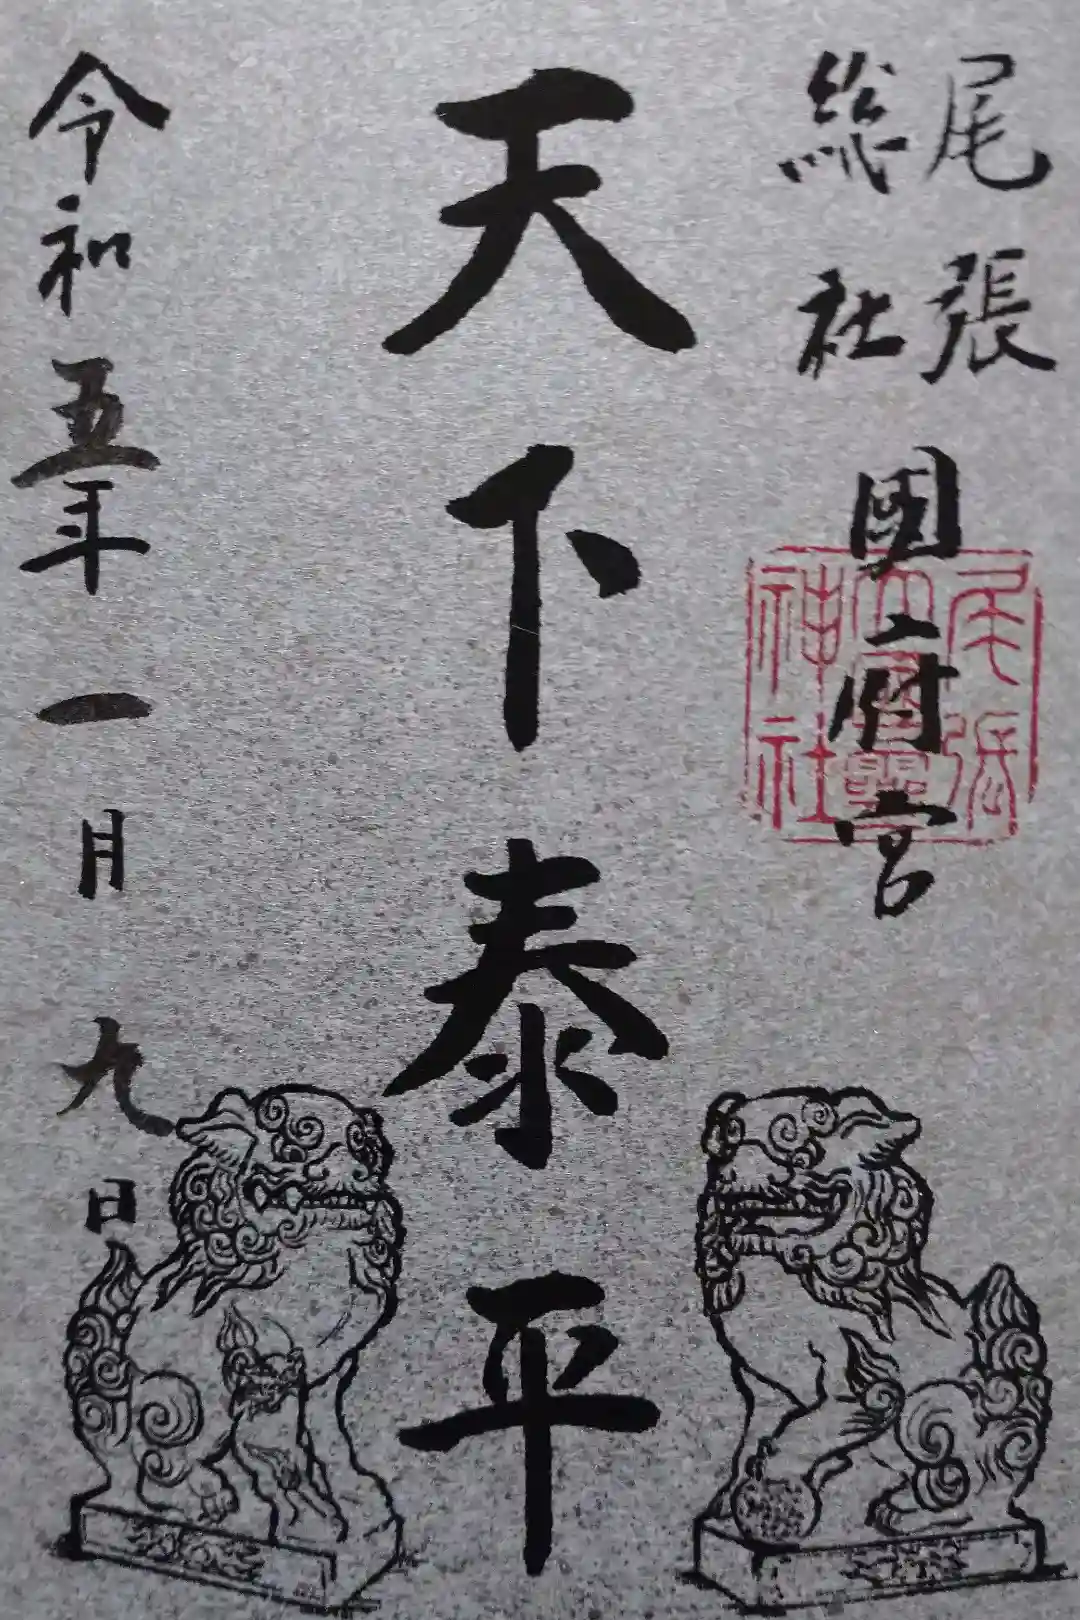 尾張
総社
國府宮
尾張
大國靈
神社
天下泰平
令和五年一月九日